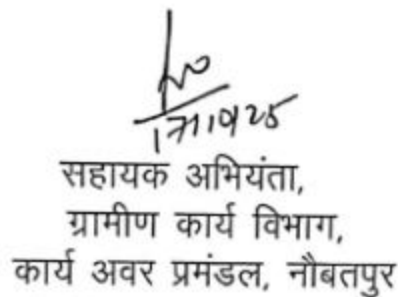 सहायक अभियंता,
ग्रामीण कार्य विभाग,
कार्य अवर प्रमंडल, नौबतपुर